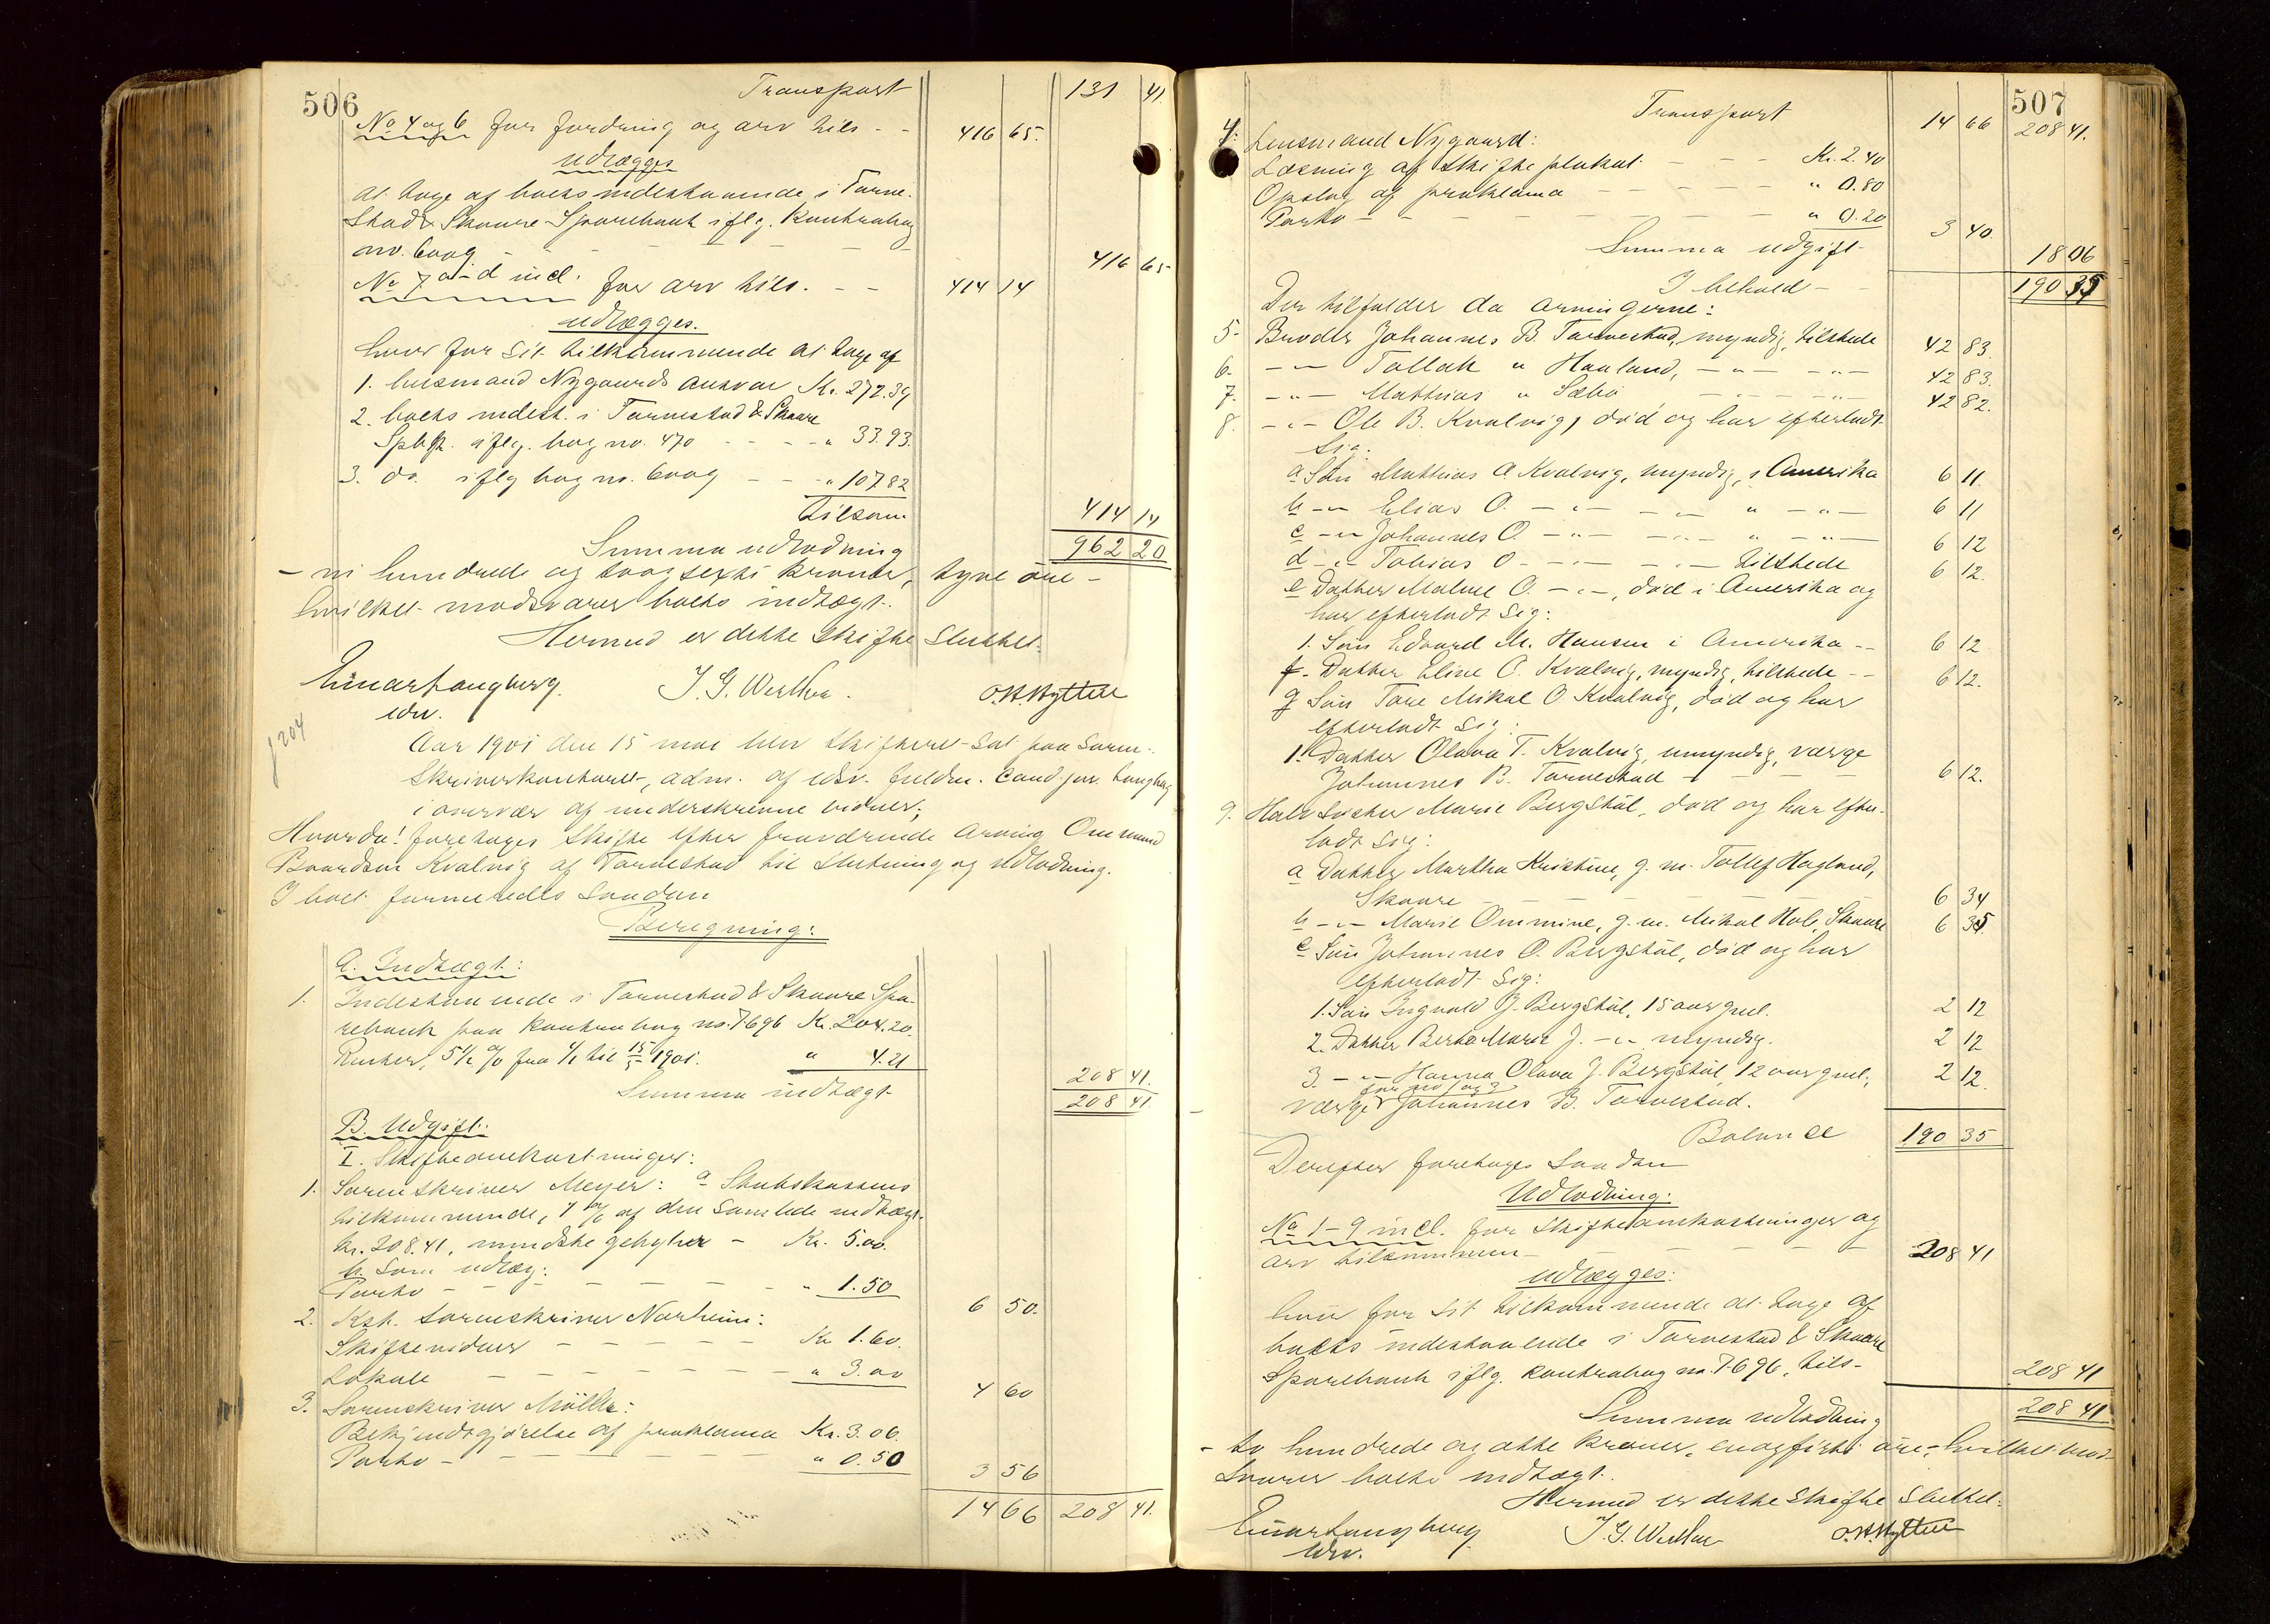 506
Transport 131 41.
No 4 og 6 for fordring og arv tils. - - 416 65.
udlægges
at tage af boets indestaaende i Torve-
stad & Skaare Sparebank iflg. kontrabog
no. 6009 - - - - - 416 65
No 7 a-d incl. for arv tils. - - 414 14
udlægges.
hver for sit tilkommende at tage af
1. lensmand Nygaards ansvar Kr. 272.39
2. boets indest. i Torvestad & Skaare
Spbk. iflg. bog no. 470 - - - " 33.93.
3. do. iflg bog no. 6009 - - - " 107.82
tilsam. 414 14
Summa udlodning 962 20
- ni hundrede og toogsexti kroner, tyve øre -
hvilket modsvarer boets indtægt.
Hermed er dette skifte sluttet.
Einar Langberg. J. G. Werther. O. H. Hytten
edv.
Aar 1901 den 15 mai blev skifteret sat paa Soren-
skriverkontoret, adm. af edsv. fuldm. Cand. jur. Langberg
i overvær af underskrevne vidner;
Hvorda! foretoges skifte efter fraværende arving Ommund
Baardsen Kvalvig af Torvestad til slutning og udlodning.
I boet formeredes saadan
Beregning:
A. Indtægt:
1. Indestaaende i Torvestad & Skaare Spa-
rebank paa kontrabog no. 7696 Kr. 204.20.
Renter, 5 1/2 % fra 1/1 til 15/5 1901. " 4.21
208 41.
Summa indtægt 208 41.
B. Udgift:
I. Skifteomkostninger:
1. Sorenskriver Meyer: a Statskassens
tilkommende, 1 % af den samlede indtægt
kr. 208.41, mindste gebyhr - Kr. 5.00.
b. Som udlæg:
Porto - - - - - " 1.50
6 50.
2. Kst. sorenskriver Norheim:
Skiftevidner - - - - Kr 1.60.
Lokale - - - - - " 3.00
4 60
3. Sorenskriver Müller:
Bekjendtgjørelse af proklama Kr. 3.06.
Porto - - - - - " 0.50
3 56
14 66 208 41.
507
Transport 14 66 208 41.
4. Lensmand Nygaard:
Læsning af skifteplakat - - - Kr. 2.40
Opslag af proklama - - - - - " 0.80
Porto - - - - - - - - " 0.20
3 40.
Summa udgift 18 06
I behold - 190 35
Der tilfalder da arvingerne:
5. Broder Johannes B. Torvestad, myndig, tilstede 42 83.
6. - " - Tollak " Haaland, - " - - " - 42 83.
7. - " - Matthias " Sæbø, - " - - " - 42 82.
8. - " - Ole B. Kvalvig, død og har efterladt
sig:
a Søn Matthias O. Kvalvig, myndig, i Amerika 6 11.
b - " - Elias O. - " - - " - " - " - 6 11
c - " - Johannes O. - " - - " - " - " - 6 12
d - " - Tobias O. - " - - " - tilstede 6 12.
e Datter Malene O. - " -, død i Amerika og
har efterladt sig:
1. Søn Edvard M. Hansen i Amerika - - 6 12
f. Datter Eline O. Kvalvig, myndig, tilstede - - 6 12.
g Søn Tore Mikal O. Kvalvig, død og har
efterladt sig:
1. Datter Olava T. Kvalvig, umyndig, værge
Johannes B. Torvestad - - - - 6 12.
9. Halvsøster Marie Bergstøl, død og har efter-
ladt sig:
a Datter Martha Kristine, g. m. Tollef Hagland,
Skaare - - - - - - 6 34
b - " - Marie Ommine, g. m. Mikal Hole, Skaare 6 35
c Søn Johannes O. Bergstøl, død og har
efterladt sig:
1. Søn Ingvald J. Bergstøl, 15 aar gml. 2 12
2. Datter Berta Marie J. - " - myndig. 2 12
3. - " - Hanna Olava J. Bergstøl 12 aar gml., 2 12.
for no 1 og 3
værge Johannes B. Torvestad.
Balance 190 35
Derefter foretoges saadan
Udlodning:
No 1-9 incl. for skifteomkostninger og
arv tilsammen - - - - - 208 41
udlægges:
hver for sit tilkommende at tage af
boets indestaaende i Torvestad & Skaare
Sparebank iflg. kontrabog no. 7696, tils- 208 41
Summa udlodning 208 41
- to hundrede og otte kroner, enogførti øre - hvilket mod-
svarer boets indtægt.
Hermed er dette skifte sluttet.
Einar Langberg J. G. Werther O. H. Hytten
edv.